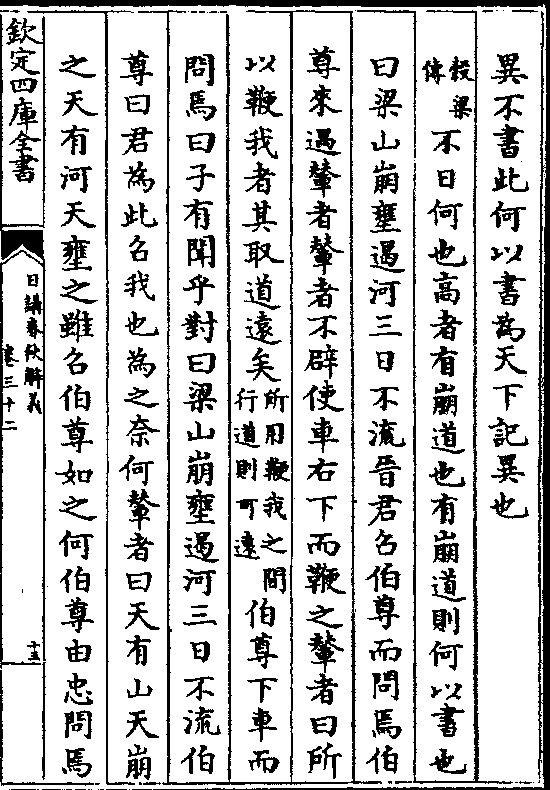 異不書此何以書為天下記異也
穀梁傳不日何也高者有崩道也有崩道則何以書也
曰梁山崩壅遏河三日不流晉君召伯尊而問焉伯
尊來遇輦者輦者不辟使車右下而鞭之輦者曰所
以鞭我者其取道遠矣所用鞭我之間行道則可遠伯尊下車而
問焉曰子有聞乎對曰梁山崩壅遏河三日不流伯
尊曰君為此召我也為之奈何輦者曰天有山天崩
之天有河天壅之雖召伯尊如之何伯尊由忠問焉
欽定四庫全書
日講春秋解義
卷三十二
十五